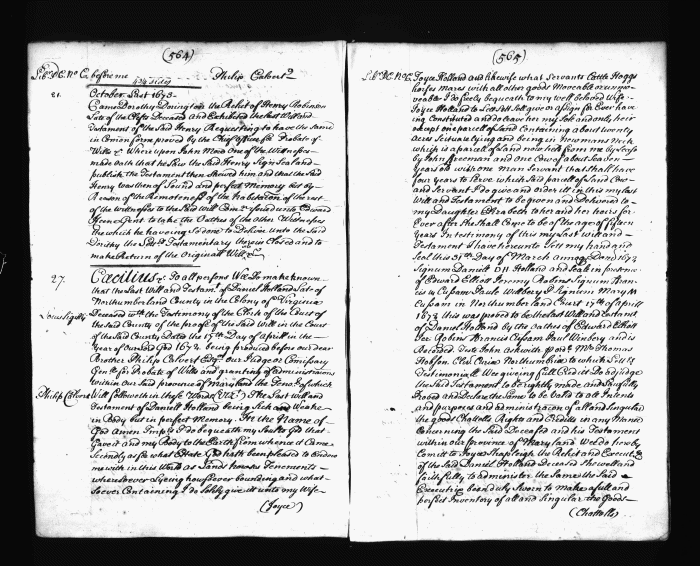 (564)
before me Philip Calvert
21. October Last 1673
Came Dorothy Dorington the Relict of Henry Robinson
Late of the Clifts Deceased And Exhibited the last Will and
Testament of the Said Henry Requesting to have the same
in Comon forme proved by the Chief Officer for Probate of
Wills &c Whereupon John Mond One of the Witnesses
made oath that he Saw the Said Henry Signe Seale and
publish the Testament then Shewed him and that the Said
Henry was then of Sound and perfect Memory but by
Reason of the Remoteness of the habitacon of the rest
of the witnesses to the Said Will Comr. issued unto Edward
to take the Oathes of the other Witnesses
the which he having So done to Deliver Unto the Said
Dorithy the Testamentary therein Closed and to
make Return of the Originall Will &c
27. Cæcilius &c To all persons Wee Do make known
that the Last Will and Testamt. of Daniel Holland Late of
Northumberland County in the Colony of Virginia
Deceased with the Testimony of the Clerk of the Court of
the Said County of the proofe of the Said Will in the Court
of the Said County Dated the 17th Day of Aprill in the
Year of our Lord 1672 being produced before our dear
Brother Philip Calvert Esqr. Our Judge or Comisary
Genll. for Probate of Wills and granting of administrations
within our Said province of Maryland the Teno.r of which
Philip Calvert Will followeth in these Words (Viz.t) The Last will and
Testament of Daniell Holland being Sick and Weake
in Body but in perfect Memory. In the Name of
God Amen Imps. I do bequeath my Soul to God that
Gave it and my Body to the Earth from whence it Came
Secondly as for what Estate God hath been pleased to endow
me with in this World as Lands houses Tenements
wheresoever Lyeing howsoever bounding and what
soever Containing I do Solely give itt unto my Wife
(Joyce)
(565)
Joyce Holland and likewise what Servants Cattle Hoggs
horses Mares with all other goods Moveable or unmo-
veable I do freely bequeath to my well beloved Wife
Joyce Holland to Lett Sell give or assign for Ever have
ing Constituted and do leave her my Sole and only heir
except one parcell of Land Containing about twenty
acres Scituate lying and being in Newmans Neck
which is a parcell of Land now Lett from me by Lease
by John Freeman and one Cow of about Seaven
years old with one Man Servant that shall have
four years to Serve which Said parcell of Land Cow
and Servant I do give and order itt in this my last
Will and Testament to be given and Delivered to
my Daughter Elizabethther and her hairs for
Ever after She Shall Come to be of the age of fifteen
years In testimony of this my last Will and
Testament I have hereunto Sett my hand and
Seal this 31th Day of March
Signum Daniel DH Holland and Seale in presence
of Edward Elliott Jeremy Robins Signum Fran-
cis Cussam Paule Winbery Signum Mary
Cussam in Northumberland Court 17th of aprill
1672 this was proved to be the last Will and testamt
of Daniel Holland by the Oathes of Edward Elliott
Jer Robins Francis Cussam Paul Winbery and is
Recorded Teste John Ashworth Pr Mr. Thomas
Hobson Cler. Curia Northumbria to which Sd.
Testimoniall We giving full Credit Do adjudge
the Said Testament to be rightly made and Lawfully
Proved and Declare the Same to be Valid to all Intents
and purposes and administracon of all and Singular
the goods Chattells Rights and Credits in any Manner
Concerning the Said Deceased and his Testament
within our Province of Maryland We do hereby
Comitt to Joyce Shapleigh the Relict and Executrix
of the Said Daniel Holland Deceased She well and
faithfully to administer the Same the Said
Executrix been duly Sworn to Make a full and
perfect Inventory of all and Singular the Goods
(Chattells)